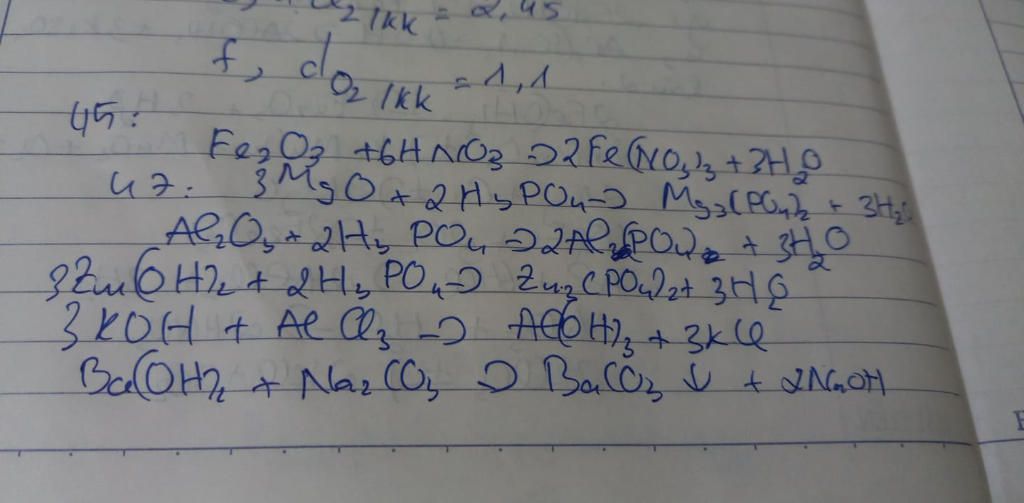 2/kk = 2,45
f, dO2/kk = 1,1
45:
Fe2O3 + 6HNO3 → 2Fe(NO3)3 + 3H2O
47: 3MgO + 2H3PO4 → Mg3(PO4)2 + 3H2O
Al2O3 + 2H3PO4 → 2Al(PO4) + 3H2O
3Zn(OH)2 + 2H3PO4 → Zn3(PO4)2 + 3H2O
3KOH + AlCl3 → Al(OH)3 + 3KCl
Ba(OH)2 + Na2CO3 → BaCO3 ↓ + 2NaOH